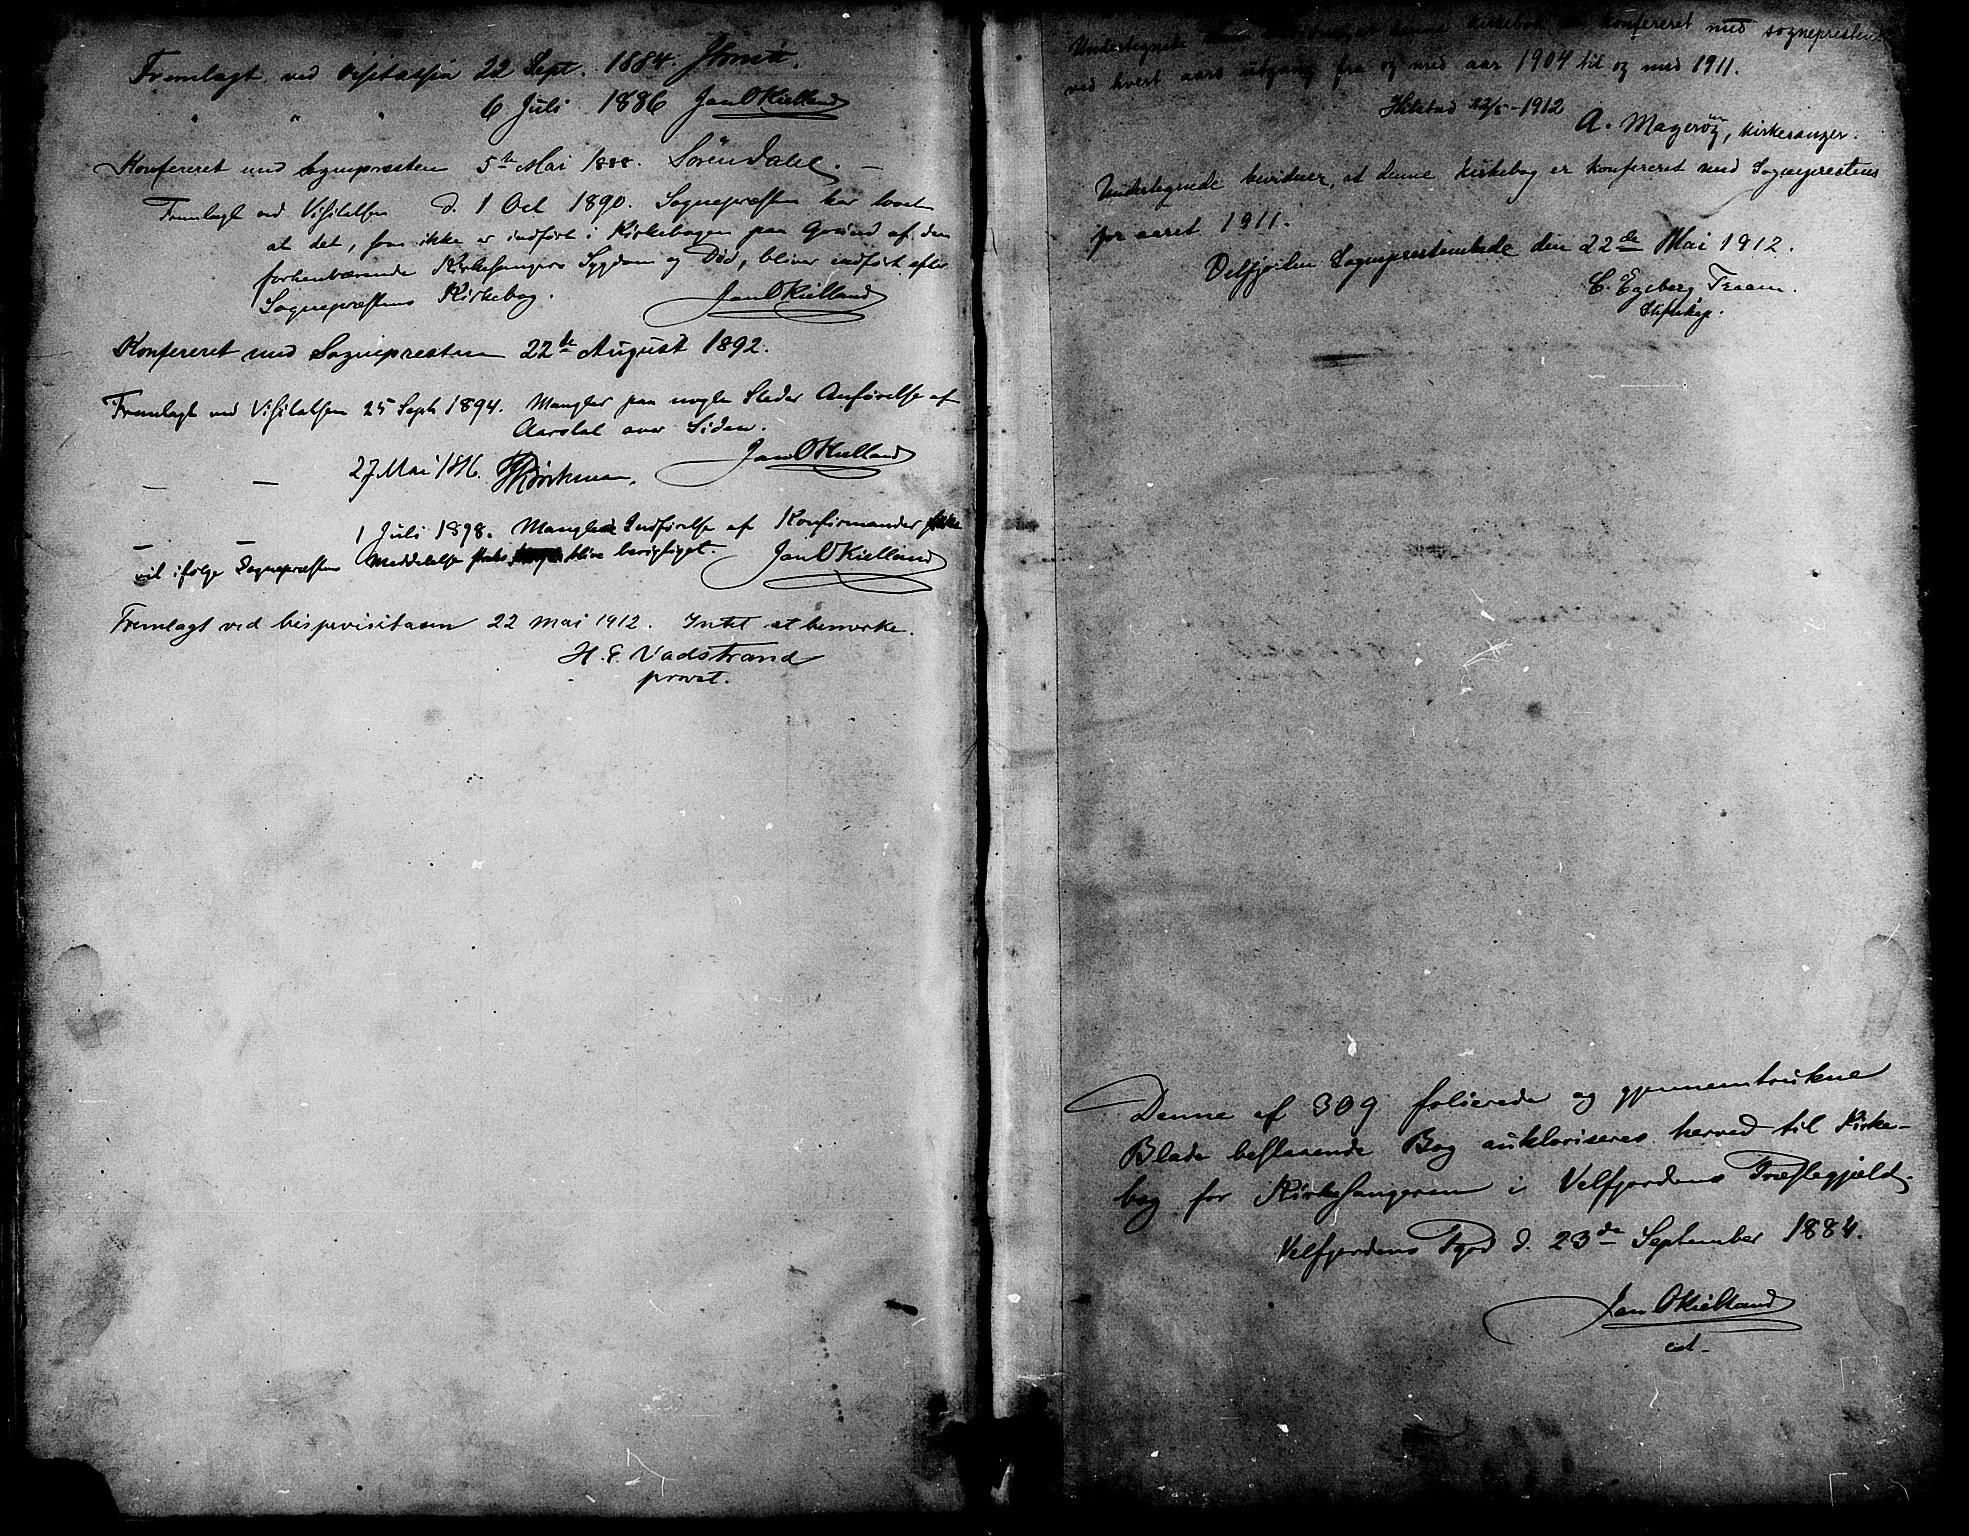 Fremlagt ved Visitatsen 22 Sept. 1884.
" " " 6 Juli 1886 Jan O Kielland
Konfereret med Sognepræsten 5te Mai 1888. Sören Dahl.
Fremlagt ved Visitatsen d. 1 Oct 1890. Sognepræsten har lovet
at det, som ikke er indført i Kirkebogen paa Grund af den
forhenværende Kirkesangers Sygdom og Död, bliver indført efter
Sognepræstens Kirkebog. Jan O Kielland
Konfereret med Sognepresten 22de August 1892.
Fremlagt ved Visitatsen 25 Sept 1894. Mangler paa nogle Steder Anførelse af
Aarstal over Siden.
Jan O Kielland
— — 27 Mai 1896.
— — 1 Juli 1898. Mangler Indførelse af Konfirmander
vil ifølge Sognepræstens Meddelelse straks blive berigtiget. Jan O Kielland
Fremlagt ved bispevisitasen 22 mai 1912. Intet at bemerke.
H. E. Vadstrand
provst.
Undertegnede at denne kirkebok er konfereret med sogneprestens
ved hvert aars utgang fra og med aar 1904 til og med 1911.
22/5 - 1912
A. Magerøy, kirkesanger.
Undertegnede bevidner, at denne kirkebog er konfereret med Sogneprestens
for aaret 1911.
Velfjorden Sogneprestembede den 22de Mai 1912.
C. Egeberg
Denne af 309 folierede og gjennemtrukne
Blade bestaaende Bog auktoriseres herved til Kirke-
bog for Kirkesangeren i Velfjordens Præstegjeld.
Velfjordens Pgrd d. 23de September 1884.
Jan O Kielland
cst.